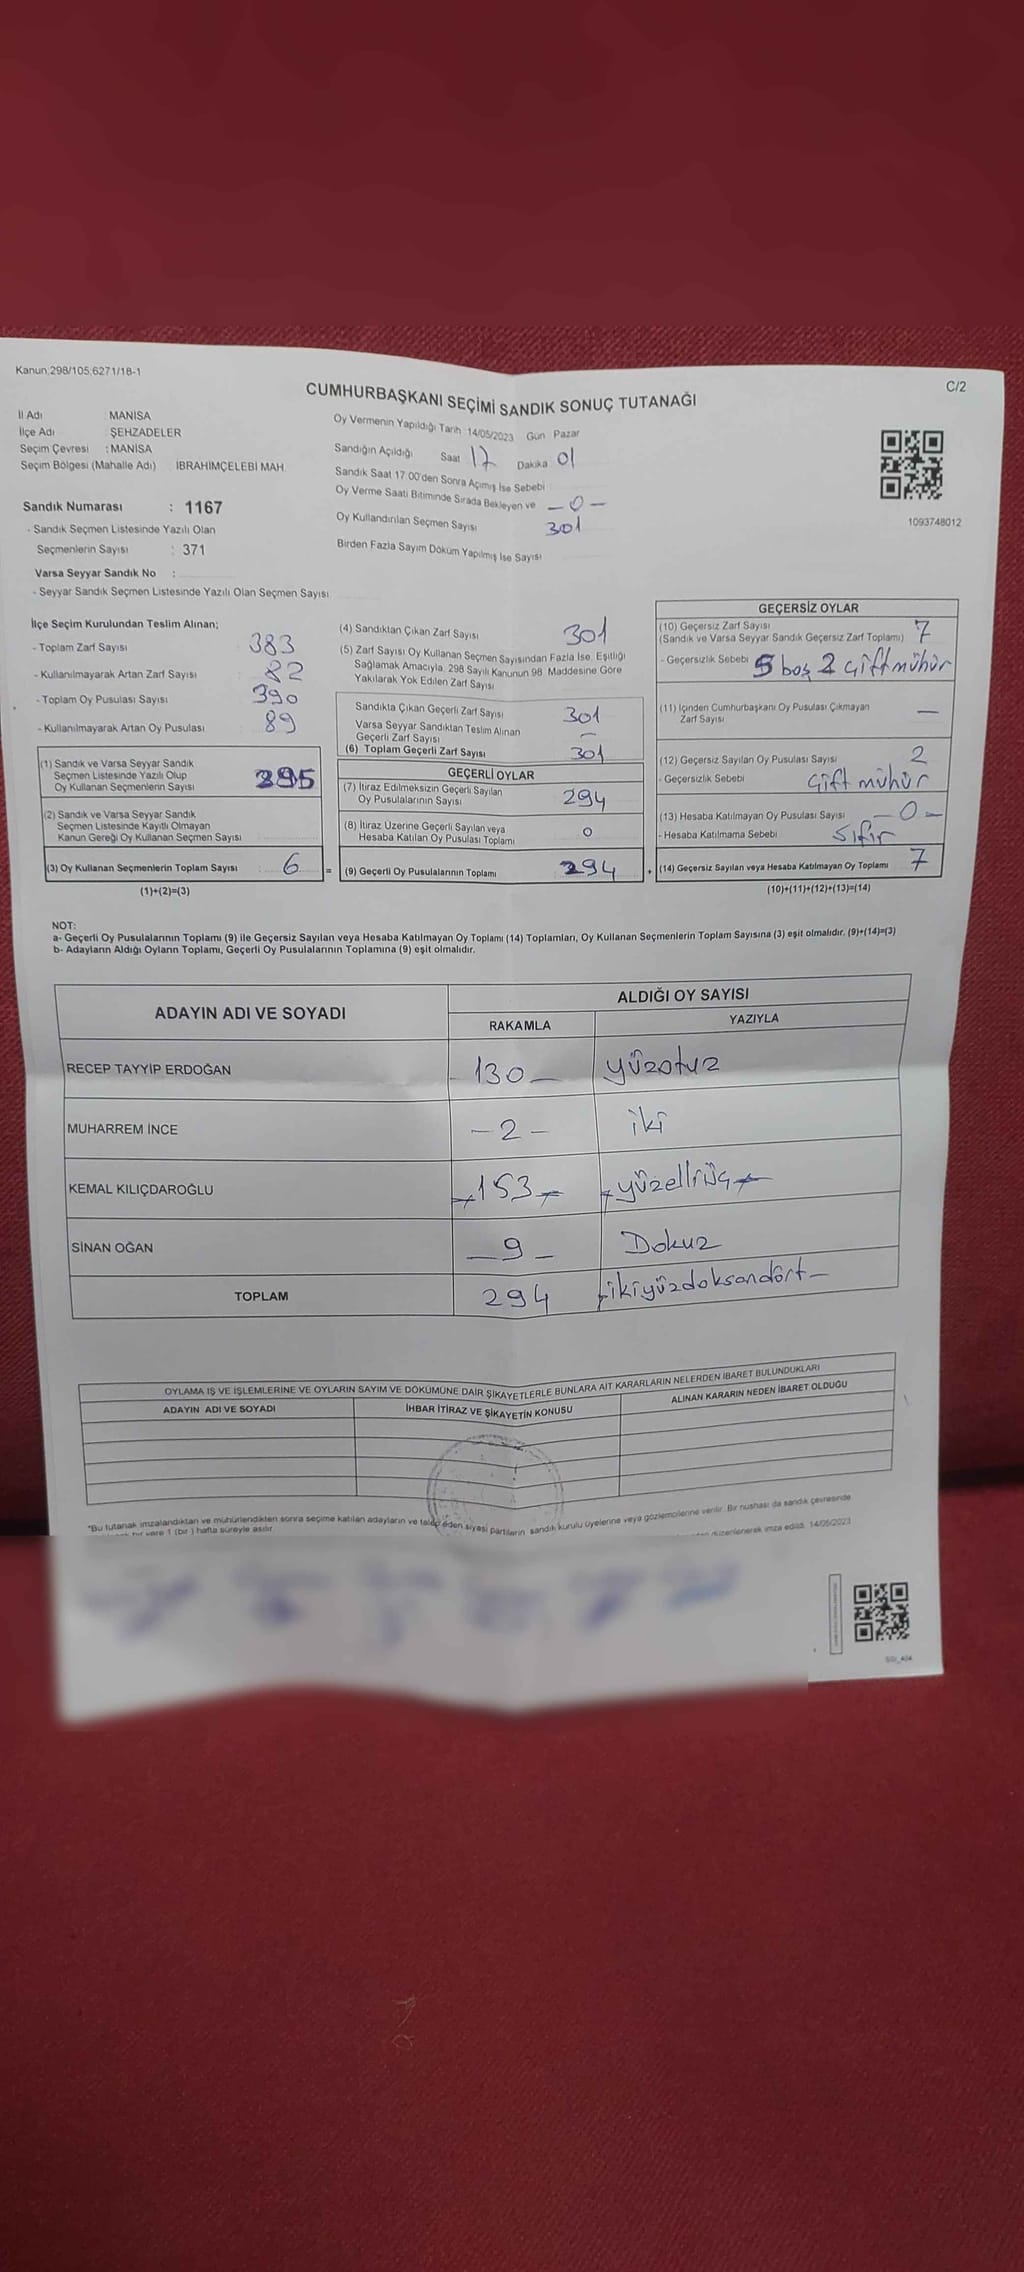 Kanun;298/105;6271/18-1
C/2
CUMHURBAŞKANI SEÇİMİ SANDIK SONUÇ TUTANAĞI
İl Adı : MANİSA
İlçe Adı : ŞEHZADELER
Seçim Çevresi : MANİSA
Seçim Bölgesi (Mahalle Adı) : İBRAHİMÇELEBİ MAH.
Sandık Numarası : 1167
- Sandık Seçmen Listesinde Yazılı Olan
Seçmenlerin Sayısı : 371
Varsa Seyyar Sandık No :
- Seyyar Sandık Seçmen Listesinde Yazılı Olan Seçmen Sayısı
Oy Vermenin Yapıldığı Tarih 14/05/2023 Gün Pazar
Sandığın Açıldığı Saat 17 Dakika 01
Sandık Saat 17:00'den Sonra Açımış İse Sebebi
Oy Verme Saati Bitiminde Sırada Bekleyen ve - 0 -
Oy Kullandırılan Seçmen Sayısı 301
Birden Fazla Sayım Döküm Yapılmış İse Sayısı
1093748012
İlçe Seçim Kurulundan Teslim Alınan;
- Toplam Zarf Sayısı 383
- Kullanılmayarak Artan Zarf Sayısı 82
- Toplam Oy Pusulası Sayısı 390
- Kullanılmayarak Artan Oy Pusulası 89
(1) Sandık ve Varsa Seyyar Sandık
Seçmen Listesinde Yazılı Olup
Oy Kullanan Seçmenlerin Sayısı
(2) Sandık ve Varsa Seyyar Sandık
Seçmen Listesinde Kayıtlı Olmayan
Kanun Gereği Oy Kullanan Seçmen Sayısı
(3) Oy Kullanan Seçmenlerin Toplam Sayısı : 6
(1)+(2)=(3)
(4) Sandıktan Çıkan Zarf Sayısı 301
(5) Zarf Sayısı Oy Kullanan Seçmen Sayısından Fazla İse, Eşitliği
Sağlamak Amacıyla, 298 Sayılı Kanunun 98. Maddesine Göre
Yakılarak Yok Edilen Zarf Sayısı
Sandıkta Çıkan Geçerli Zarf Sayısı 301
Varsa Seyyar Sandıktan Teslim Alınan
Geçerli Zarf Sayısı -
(6) Toplam Geçerli Zarf Sayısı 301
GEÇERLİ OYLAR
(7) İtiraz Edilmeksizin Geçerli Sayılan
Oy Pusulalarının Sayısı 294
(8) İtiraz Üzerine Geçerli Sayılan veya
Hesaba Katılan Oy Pusulaları Toplamı 0
= (9) Geçerli Oy Pusulalarının Toplamı 294
GEÇERSİZ OYLAR
(10) Geçersiz Zarf Sayısı 7
(Sandık ve Varsa Seyyar Sandık Geçersiz Zarf Toplamı)
- Geçersizlik Sebebi 5 boş 2 çift mühür
(11) İçinden Cumhurbaşkanı Oy Pusulası Çıkmayan
Zarf Sayısı —
(12) Geçersiz Sayılan Oy Pusulası Sayısı 2
- Geçersizlik Sebebi çift mühür
(13) Hesaba Katılmayan Oy Pusulası Sayısı - 0 -
- Hesaba Katılmama Sebebi Sıfır
+ (14) Geçersiz Sayılan veya Hesaba Katılmayan Oy Toplamı 7
(10)+(11)+(12)+(13)=(14)
NOT:
a- Geçerli Oy Pusulalarının Toplamı (9) ile Geçersiz Sayılan veya Hesaba Katılmayan Oy Toplamı (14) Toplamları, Oy Kullanan Seçmenlerin Toplam Sayısına (3) eşit olmalıdır. (9)+(14)=(3)
b- Adayların Aldığı Oyların Toplamı, Geçerli Oy Pusulalarının Toplamına (9) eşit olmalıdır.
ADAYIN ADI VE SOYADI
ALDIĞI OY SAYISI
RAKAMLA YAZIYLA
RECEP TAYYİP ERDOĞAN 130 - yüzotuz
MUHARREM İNCE - 2 - iki
KEMAL KILIÇDAROĞLU - 153 - - yüzelliüç -
SİNAN OĞAN - 9 - Dokuz
TOPLAM 294 - ikiyüzdoksandört -
OYLAMA İŞ VE İŞLEMLERİNE VE OYLARIN SAYIM VE DÖKÜMÜNE DAİR ŞİKAYETLERLE BUNLARA AİT KARARLARIN NELERDEN İBARET BULUNDUKLARI
ADAYIN ADI VE SOYADI İHBAR İTİRAZ VE ŞİKAYETİN KONUSU ALINAN KARARIN NEDEN İBARET OLDUĞU
*Bu tutanak imzalandıktan ve mühürlendikten sonra seçime katılan adayların ve talep eden siyasi partilerin sandık kurulu üyelerine veya gözlemcilerine verilir. Bir nüshası da sandık çevresinde
bir yere 1 (bir ) hafta süreyle asılır.
düzenlenerek imza edildi. 14/05/2023